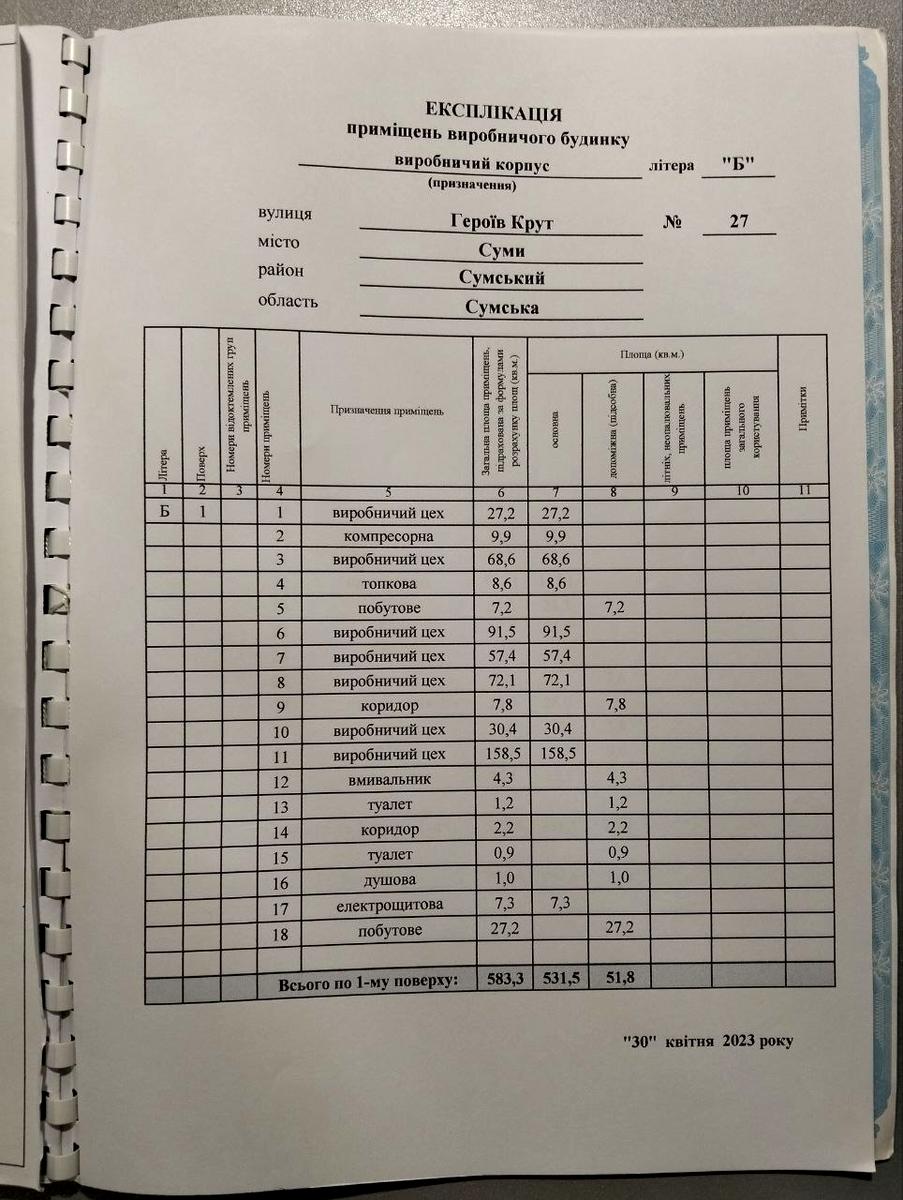 ЕКСПЛІКАЦІЯ
приміщень виробничого будинку
виробничий корпус літера "Б"
(призначення)
вулиця Героїв Крут № 27
місто Суми
район Сумський
область Сумська
Літера Поверх Номери відокремлених груп приміщень Номери приміщень Призначення приміщень Загальна площа приміщень, підрахована за формулами розрахунку площ (кв.м.) Площа (кв.м.) основна допоміжна (підсобна) літніх, неопалювальних приміщень площа приміщень загального користування Примітки
1 2 3 4 5 6 7 8 9 10 11
Б 1 1 виробничий цех 27,2 27,2
2 компресорна 9,9 9,9
3 виробничий цех 68,6 68,6
4 топкова 8,6 8,6
5 побутове 7,2 7,2
6 виробничий цех 91,5 91,5
7 виробничий цех 57,4 57,4
8 виробничий цех 72,1 72,1
9 коридор 7,8 7,8
10 виробничий цех 30,4 30,4
11 виробничий цех 158,5 158,5
12 вмивальник 4,3 4,3
13 туалет 1,2 1,2
14 коридор 2,2 2,2
15 туалет 0,9 0,9
16 душова 1,0 1,0
17 електрощитова 7,3 7,3
18 побутове 27,2 27,2
Всього по 1-му поверху: 583,3 531,5 51,8
"30" квітня 2023 року